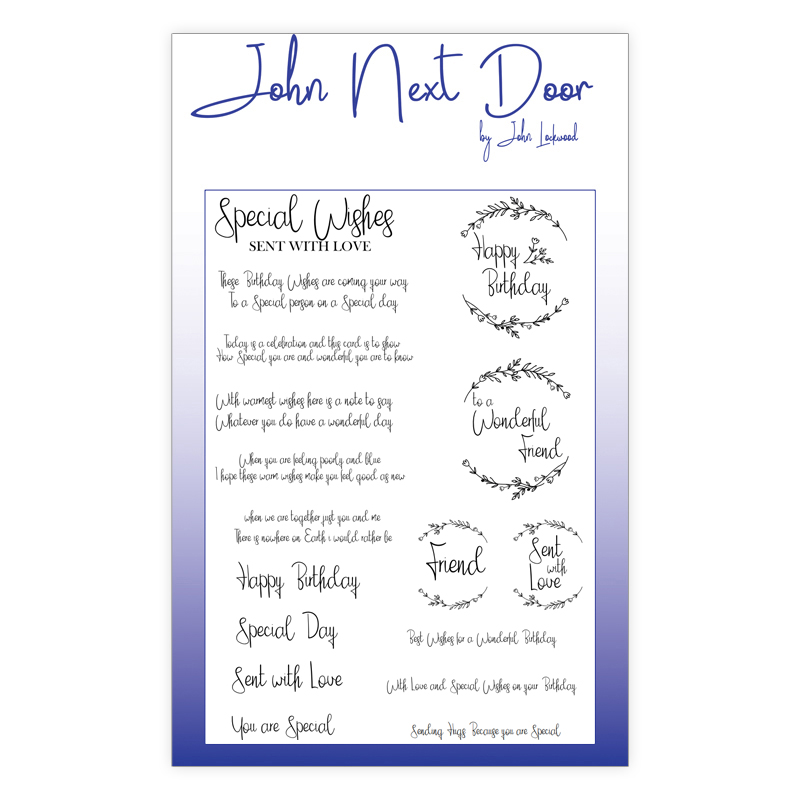 John Next Door
by John Lockwood
Special Wishes
SENT WITH LOVE
These Birthday Wishes are coming your way
To a Special person on a Special day
Today is a celebration and this card is to show
How Special you are and wonderful you are to know
With warmest wishes here is a note to say
Whatever you do have a wonderful day
When you are feeling poorly and blue
I hope these warm wishes make you feel good as new
when we are together just you and me
There is nowhere on Earth i would rather be
Happy Birthday
Special Day
Sent with Love
You are Special
Happy
Birthday
to a
Wonderful
Friend
Friend
Sent
with
Love
Best Wishes for a Wonderful Birthday
With Love and Special Wishes on your Birthday
Sending Hugs Because you are Special